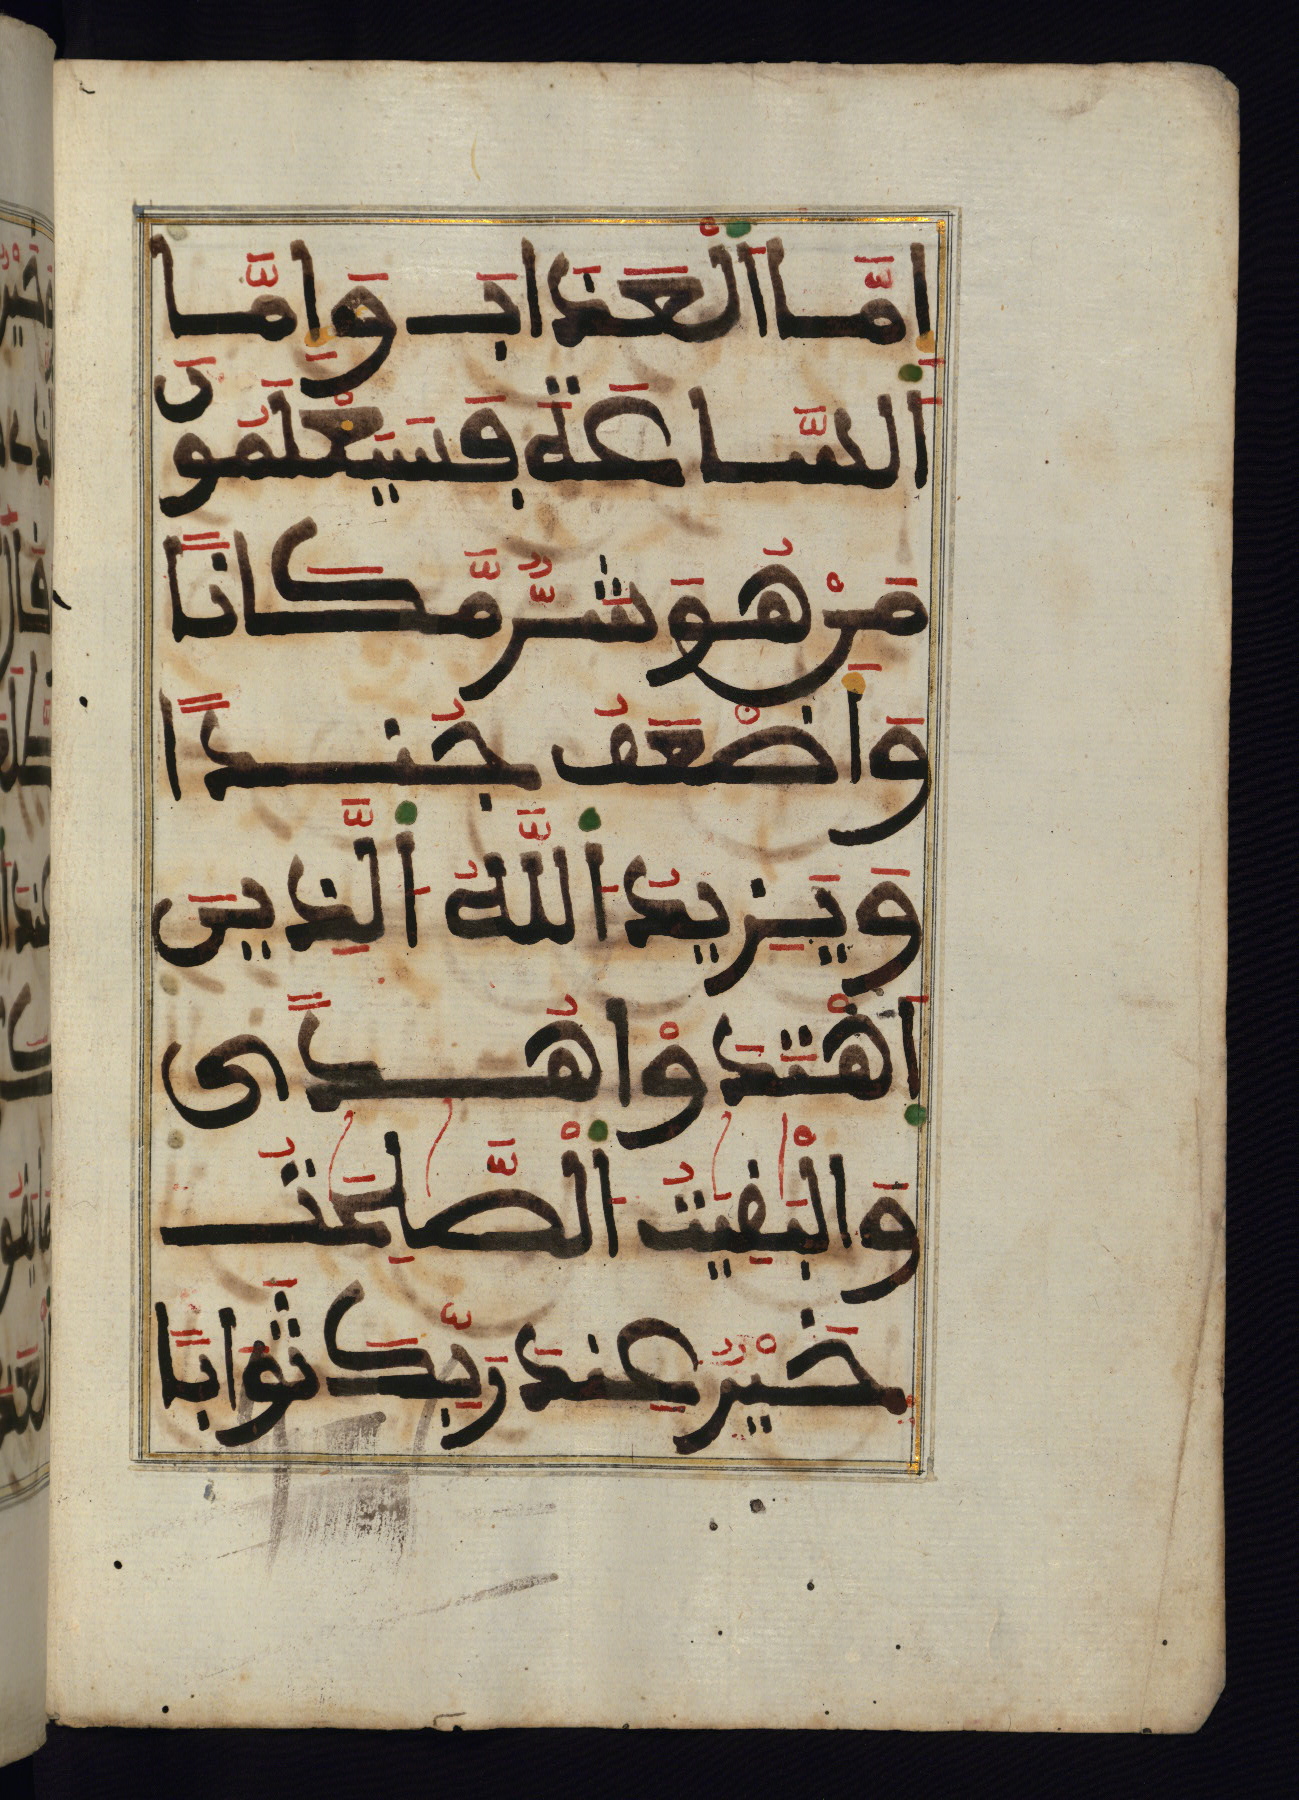 اِمَّا اَ۬لْعَذَابَ وَإِمَّا
اَ۬لسَّاعَةَ فَسَيَعْلَمُونَ
مَنْ هُوَ شَرٌّ مَّكَاناً
وَأَضْعَفُ جُنداً
وَيَزِيدُ اُ۬للَّهُ اُ۬لَّذِينَ
اَ۪هْتَدَوْا هُدىً
وَالْبَٰقِيَٰتُ اُ۬لصَّٰلِحَٰتُ
خَيْرٌ عِندَ رَبِّكَ ثَوَاباً